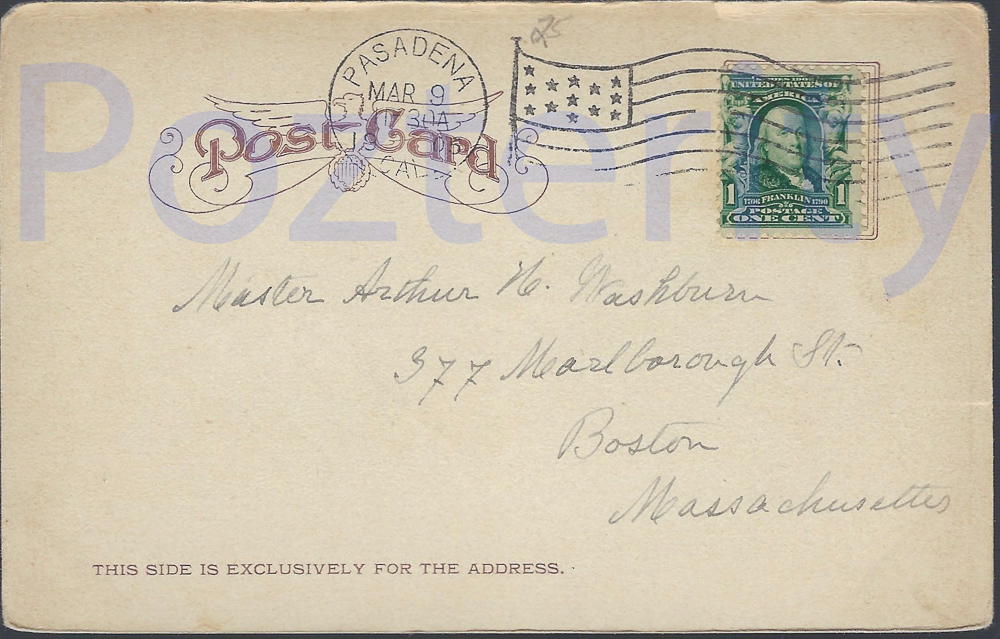 PASADENA
MAR 9
30A
CAL.
Post Card
SERIES 1902
UNITED STATES OF
AMERICA
1 1
1706 FRANKLIN 1790
POSTAGE
ONE CENT
Pozterity
Master Arthur H. Washburn
377 Marlborough St.
Boston
Massachusetts
THIS SIDE IS EXCLUSIVELY FOR THE ADDRESS.